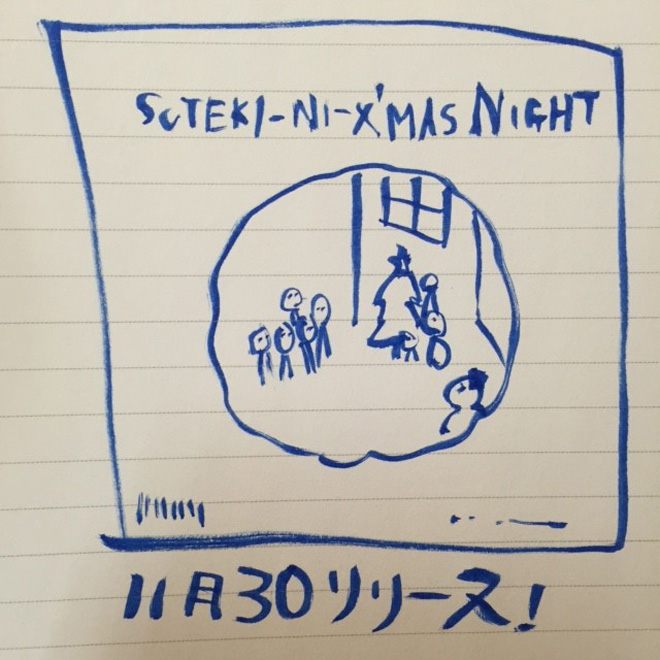 SUTEKI-NI-X'MAS NIGHT
11月30リリース!